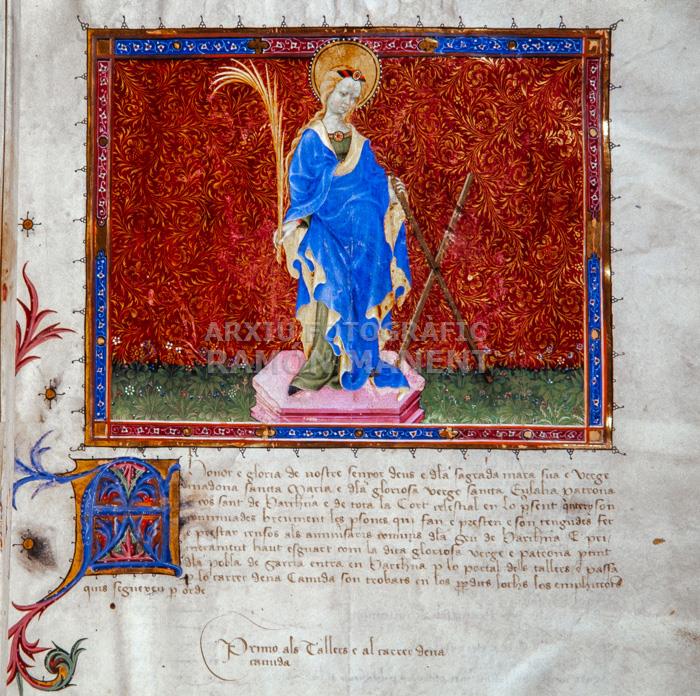 ARXIU FOTOGRÀFIC
RAMON MANENT
A honor e gloria de nostre senyor deus e dla sagrada mara sua e verge
madona sancta Maria e dla gloriosa verge sancta Eulalia patrona
e cos sant de Barchna e de tota la Cort celestial en lo psent son
breument les psones qui fan e presten e son tengudes fer
e prestar censos als aniusaris comuns dla Seu de Barchna E pri
merament haut esguart com la dita gloriosa verge e patrona
dla pobla de garcia entra en Barchna p lo portal dels tallers e passa
p lo carrer dena Canuda son trobats en los lochs los
quis seguexen p orde
Primo als Tallers e al carrer dena
canuda